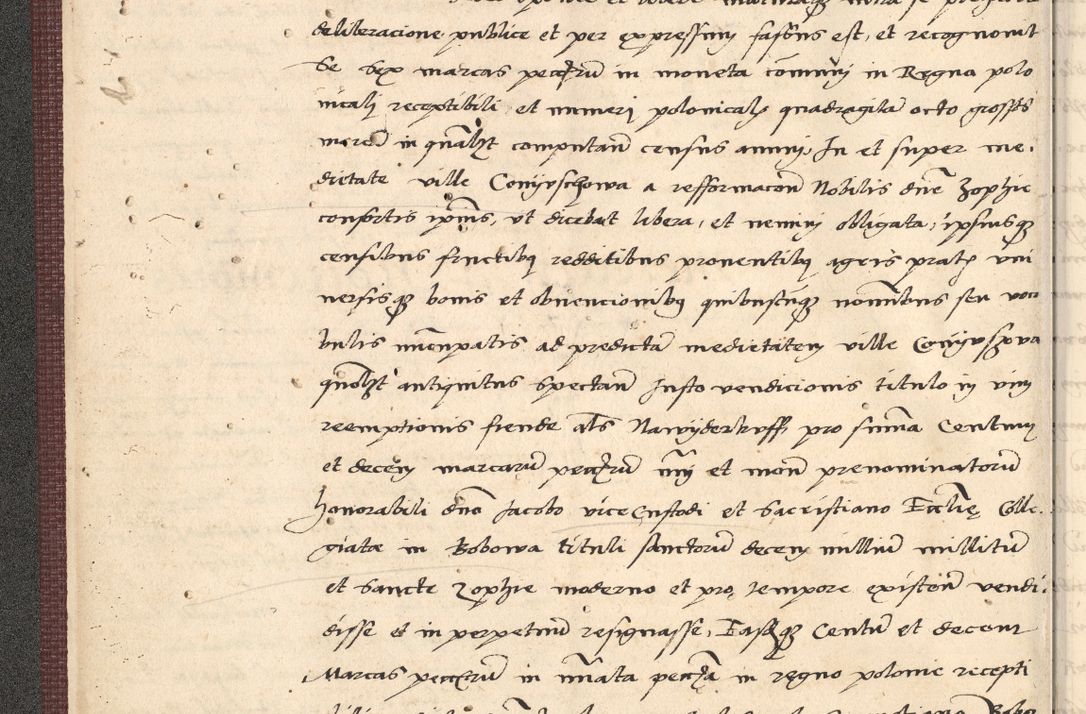 deliberacione publice et per expressum fassus est, et recognovit
Se Sex marcas peccūrū in moneta cōmuni in Regno polo
nicali receptibili et numeri polonicalȝ quadraginta octo grossos
marcā in qūalȝt computañ census annui, In et super me.
dietate ville Conyuschowa a refformacoñ Nobilis dñe Zophie
consortis ipius, ut dicebat libera, et nemini obligata, ipsiusqȝ
censibus fructibȝ redditibus proventibȝ agris pratȝ uni
versisqȝ bonis et obvencionibȝ quibuscūqȝ noīntibus seu voca
bulis nūcupatis ad predictā medietatem ville Conyuschowa
quolȝt antiquitus spectañ Justo vendicionis titulo in vim
reempcionis fiende als Nawyderkuff, pro suma Centum
et decem marcarū peccūrū nūi et moñ prenominatorū
honorabili dño Jacobo viceCustodi et Sacristiano Ecclīe Colle.
giatæ in Bobowa tituli sanctorū decem millium millitū
et Sancte Zophie moderno et pro tempore existeñ vendi.
disse et in perpetuū resignasse, Easdqȝ Centū et decem
Marcas peccūrū in nūata peccūa in regno polonie recepti